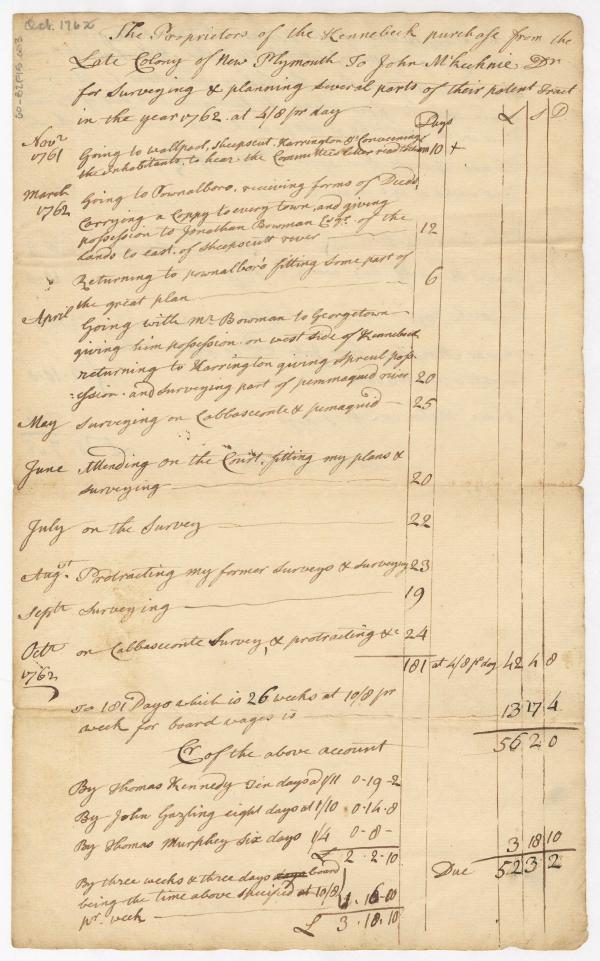 Oct. 1762
60-B2F15-003
The Proprietors of the Kennebeck purchase from the
Late Colony of New Plymouth To John McKechnie Dr
for Surveying & planning several parts of their patent Tract
in the year 1762. at 4/8 pr day
Days £ S D
Novr 1761 Going to wallpool, Sheepscut, Harrington & Conveening
the inhabitants to hear the Committees letter read to them 10 +
March 1762 Going to Pownalboro, receiving forms of Deeds,
Carrying a Coppy to every town, and giving
possession to Jonathan Bowman Esqr. of the
Lands to east of Sheepscutt river 12
Returning to pownalboro fitting some part of
the great plan 6
April Going with Mr Bowman to Georgetown
giving him possession on west side of Kennebeck
returning to Harrington giving Sproul poss-
:ession and surveying part of pemmaquid river 20
May Surveying on Cabbasconte & pemaquid 25
June Attending on the Court, fitting my plans &
surveying 20
July on the Survey 22
Augst Protracting my former Surveys & surveying 23
Septr Surveying 19
Octr 1762 on Cabbasconte Survey, & protracting &c 24
181 at 4/8 pr day 42 4 8
To 181 Days which is 26 weeks at 10/8 pr
week for board wages is 13 17 4
56 2 0
Cr of the above account
By Thomas Kennedy Ten days a 1/11 0-19-2
By John Gazling eight days at 1/10 0-14-8
By Thomas Murphey Six days 1/4 0-8-
£ 2.2.10
3 18 10
Due 52 3 2
By three weeks & three days days board
being the time above specified at 10/8
pr. week 1.16.00
£ 3.18.10